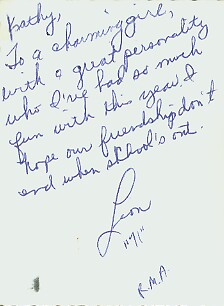 Kathy,
To a charming girl,
with a great personality
who I've had so much
fun with this year. I
hope our friendship don't
end when school's out.
Leon
"71"
R.M.A.